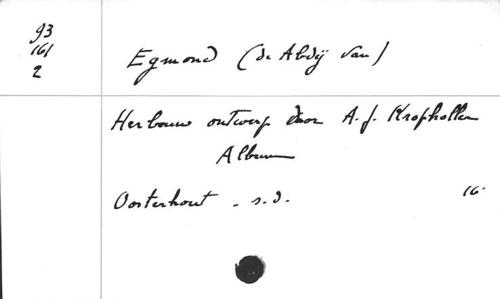 93
161
2
Egmond (de Abdij van)
Herbouw ontwerp door A. J. Kropholler
Album
Oosterhout . s.d. 16.